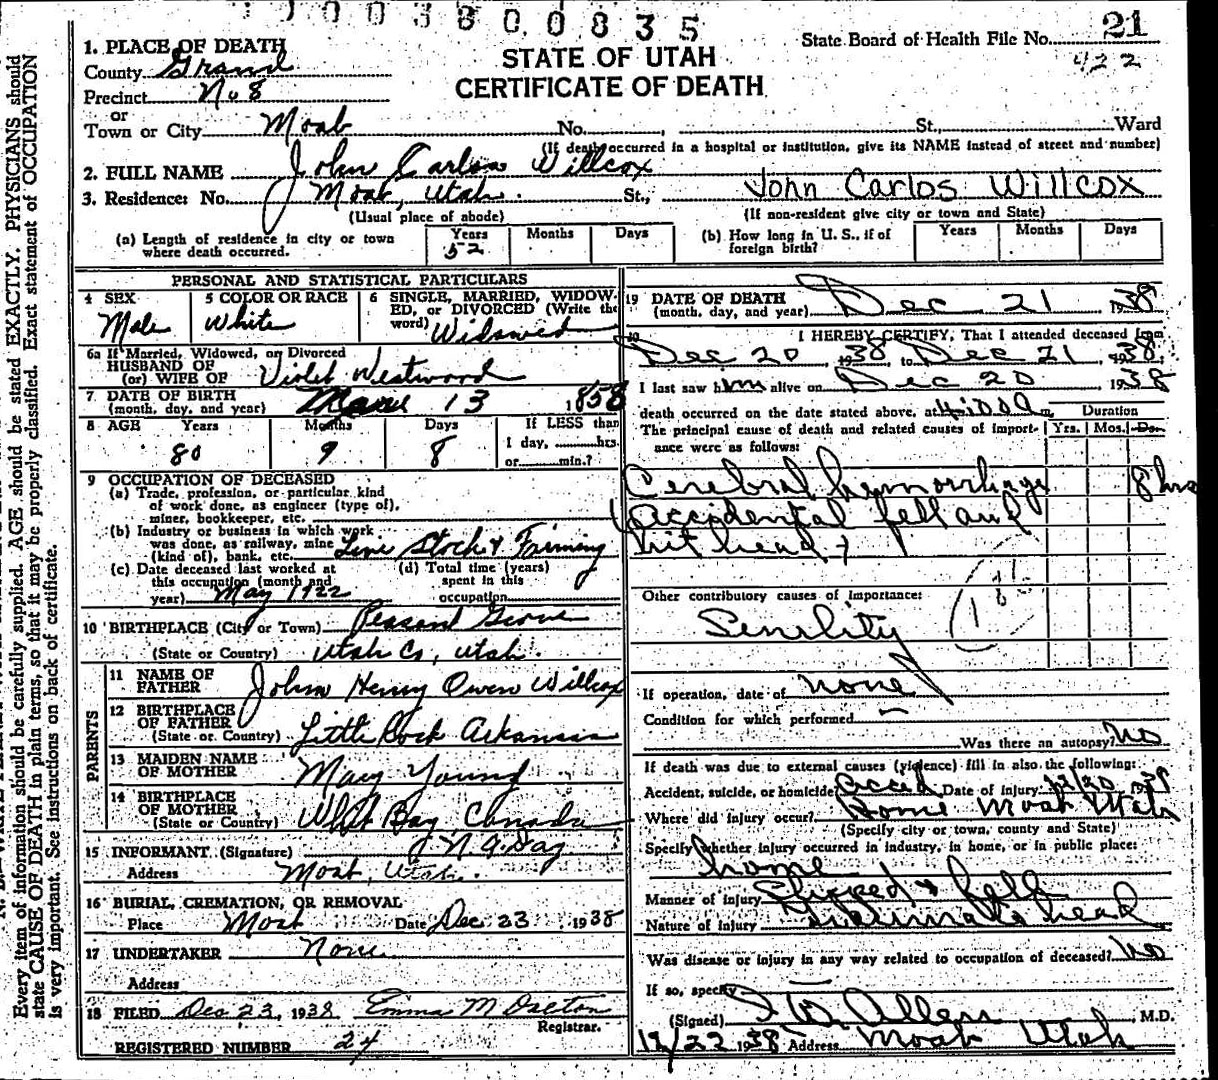 1003800835
21
State Board of Health File No.
422
STATE OF UTAH
CERTIFICATE OF DEATH
1. PLACE OF DEATH
County Grand
Precinct No 8
or
Town or City Moab No. , St., Ward
(If death occurred in a hospital or institution, give its NAME instead of street and number)
2. FULL NAME John Carlos Willcox
3. Residence: No. Moab, Utah. St., John Carlos Willcox
(Usual place of abode) (If non-resident give city or town and State)
(a) Length of residence in city or town where death occurred. Years 52 Months Days
(b) How long in U. S., if of foreign birth? Years Months Days
PERSONAL AND STATISTICAL PARTICULARS
4 SEX Male
5 COLOR OR RACE White
6 SINGLE, MARRIED, WIDOWED, or DIVORCED (Write the word) Widowed
6a If Married, Widowed, or Divorced
HUSBAND OF
(or) WIFE OF Violet Westwood
7 DATE OF BIRTH
(month, day, and year) 13 1858
8 AGE Years 80 Months 9 Days 8
If LESS than 1 day, hrs. or min.?
9 OCCUPATION OF DECEASED
(a) Trade, profession, or particular kind of work done, as engineer (type of), miner, bookkeeper, etc.
(b) Industry or business in which work was done, as railway, mine (kind of), bank, etc. Live Stock & Farming
(c) Date deceased last worked at this occupation (month and year) May 1922
(d) Total time (years) spent in this occupation
10 BIRTHPLACE (City or Town) Pleasant Grove
(State or Country) Utah Co, Utah.
PARENTS
11 NAME OF FATHER John Henry Owen Willcox
12 BIRTHPLACE OF FATHER
(State or Country) Little Rock Arkansas
13 MAIDEN NAME OF MOTHER Mary Young
14 BIRTHPLACE OF MOTHER
(State or Country) Whit Bay, Canada
15 INFORMANT (Signature)
Address Moab, Utah.
16 BURIAL, CREMATION, OR REMOVAL
Place Moab Date Dec 23, 1938
17 UNDERTAKER None
Address
18 FILED Dec 23, 1938 Emma M Dalton
Registrar.
REGISTERED NUMBER 24
19 DATE OF DEATH
(month, day, and year) Dec 21 1938
20 I HEREBY CERTIFY, That I attended deceased from
Dec 20 1938, to Dec 21, 1938,
I last saw him alive on Dec 20 1938
death occurred on the date stated above, at 4:00 a m. Duration
The principal cause of death and related causes of importance were as follows: Yrs. Mos. Ds.
Cerebral hemorrhage 8 hrs
accidental fell and
hit head
Other contributory causes of importance:
Senility
If operation, date of none
Condition for which performed
Was there an autopsy? No
If death was due to external causes (violence) fill in also the following:
Accident, suicide, or homicide accid Date of injury 12/20 1938
Where did injury occur? Home Moab Utah
(Specify city or town, county and State)
Specify whether injury occurred in industry, in home, or in public place:
home
Manner of injury Slipped & fell
Nature of injury head
Was disease or injury in any way related to occupation of deceased? No
If so, specify
(Signed) Allen M.D.
12/22 1938 Address Moab Utah
Every item of information should be carefully supplied. AGE should be stated EXACTLY. PHYSICIANS should
state CAUSE OF DEATH in plain terms, so that it may be properly classified. Exact statement of OCCUPATION
is very important. See instructions on back of certificate.